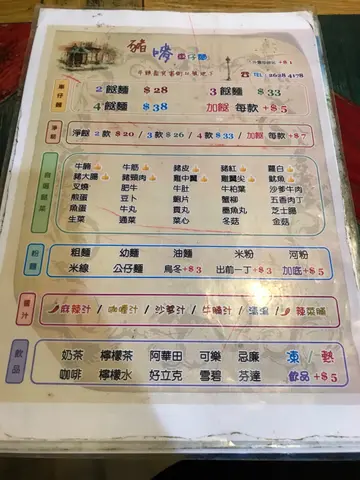 豬嗱車仔麵
☎ TEL 2638 4178
車仔麵
2餸麵 $28 3餸麵 $33
4餸麵 $38 加餸 每款 +$5
淨餸 2款 $20 / 3款 $26 / 4款 $33 / 加餸 每款 +$7
牛腩 牛筋 豬皮 豬紅 蘿白
豬大腸 豬頸肉 雞中翼 雞翼尖 魷魚
叉燒 肥牛 牛肚 牛柏葉 沙爹牛肉
煎蛋 豆卜 鮑片 蟹柳 五香肉丁
魚肉 牛丸 貢丸 墨魚丸 芝士腸
生菜 通菜 菜心 冬菇 金菇
粉麵
粗麵 幼麵 油麵 米粉 河粉
米線 公仔麵 烏冬+$3 出前一丁+$3 加底+$5
醬汁
麻辣汁 / 咖喱汁 / 沙爹汁 / 牛腩汁 / 清湯 / 辣菜脯
飲品
奶茶 檸檬茶 阿華田 可樂 忌廉 凍 / 熱
咖啡 檸檬水 好立克 雪碧 芬達 飲品 +$5